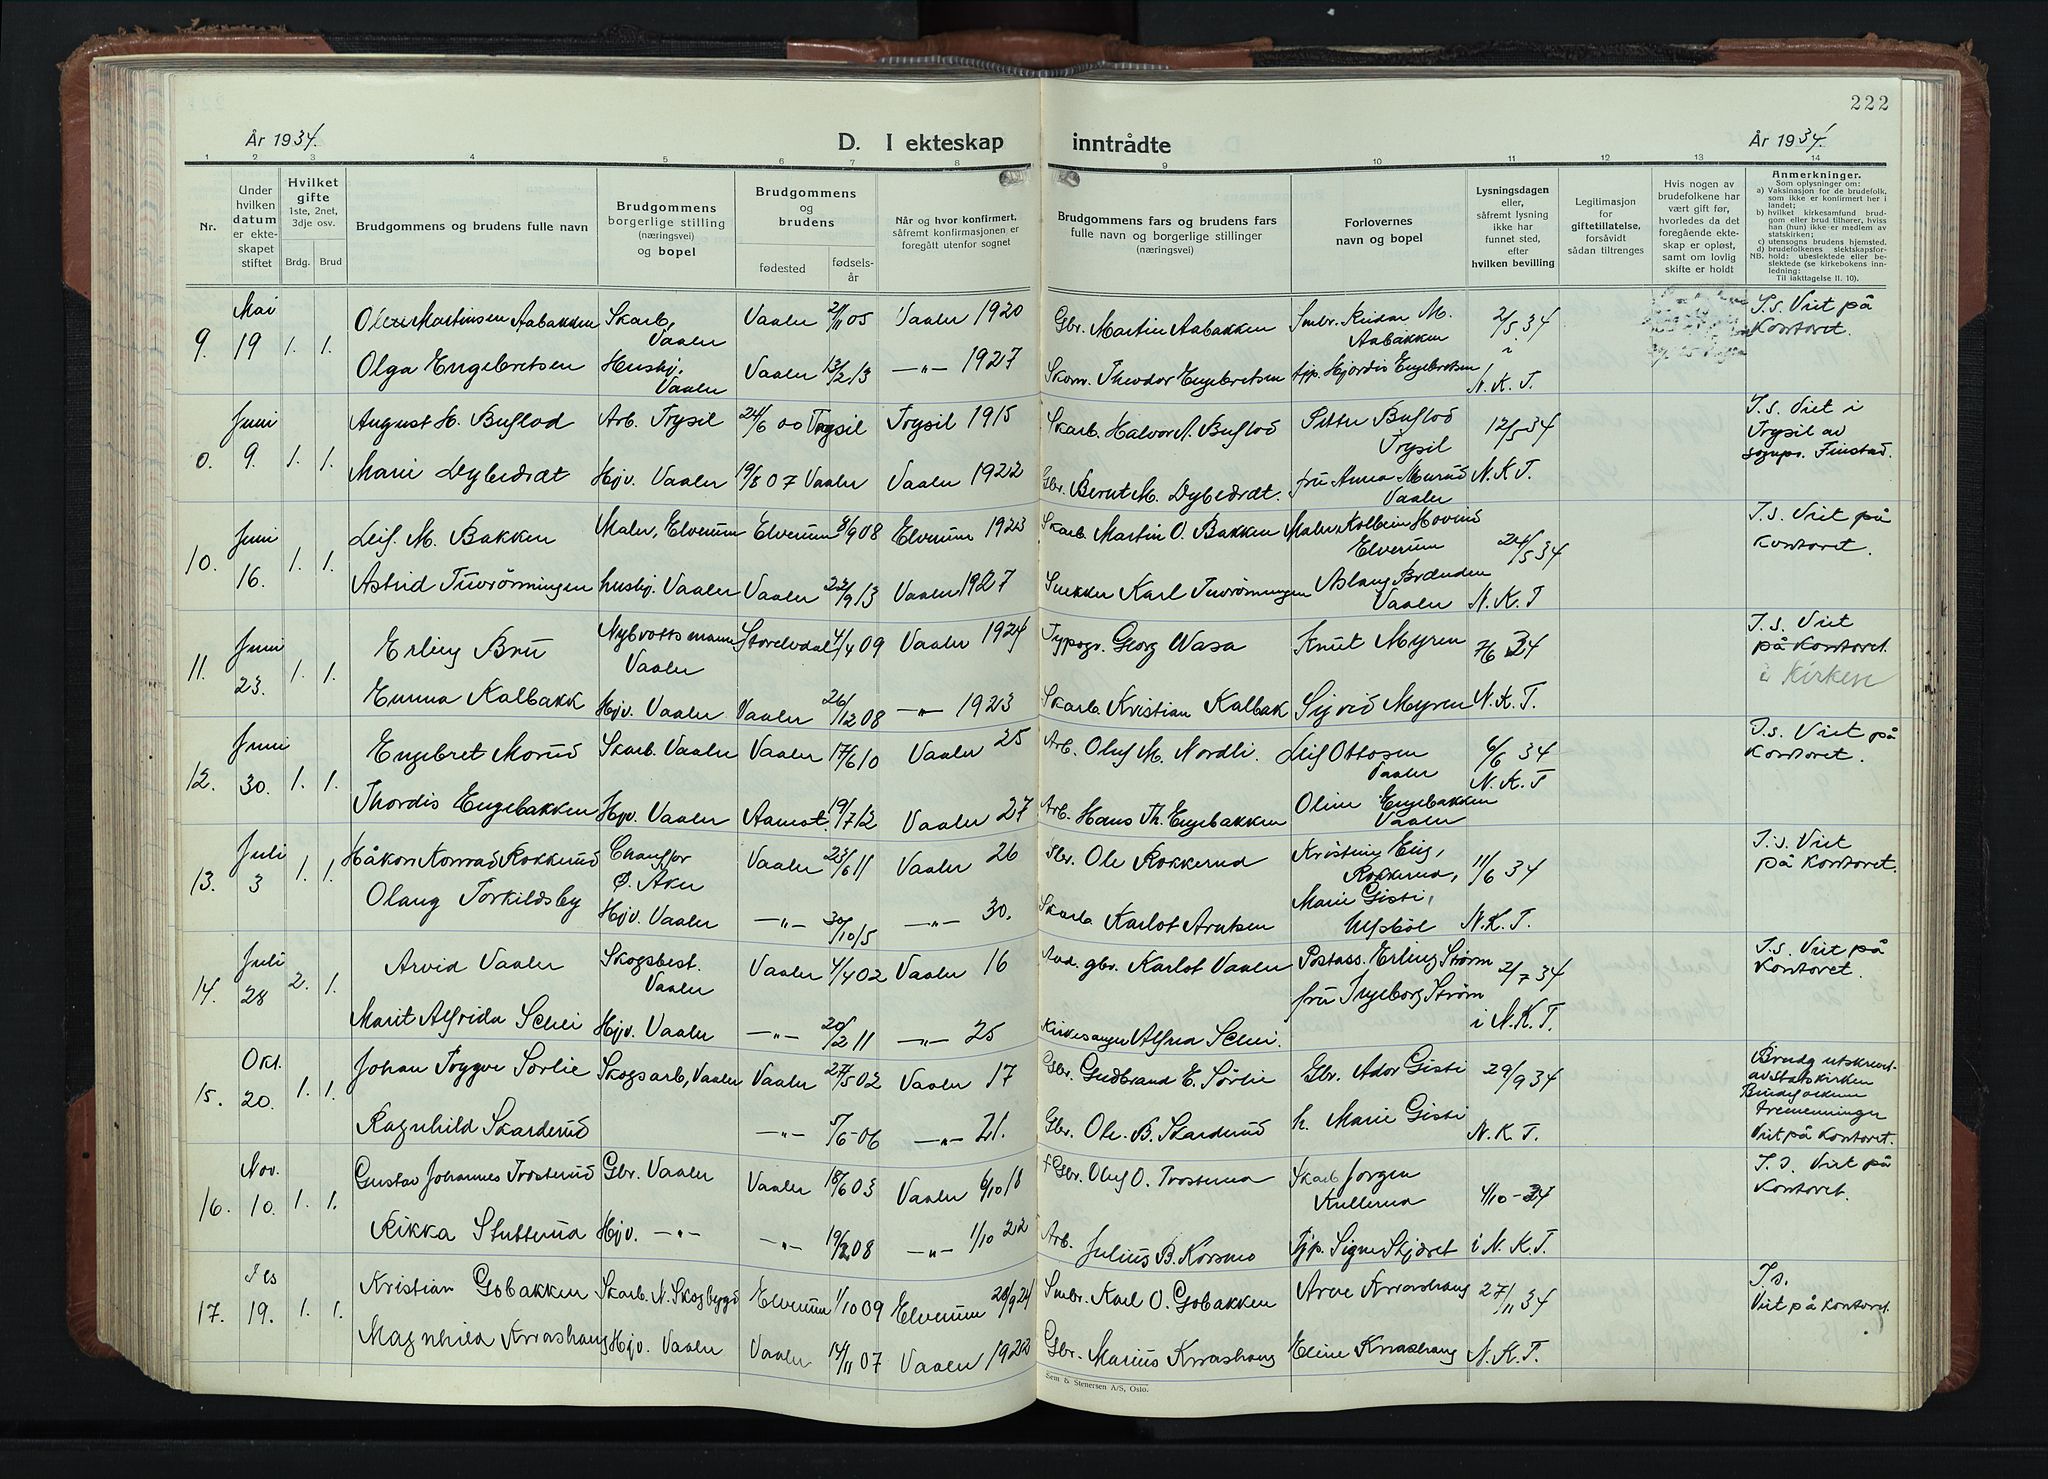 222
År 1934.
D. I ekteskap inntrådte
År 1934.
1 2 3 4 5 6 7 8 9 10 11 12 13 14
Nr.
Under hvilken datum er ekteskapet stiftet
Hvilket gifte 1ste, 2net, 3dje osv.
Brdg. Brud
Brudgommens og brudens fulle navn
Brudgommens borgerlige stilling (næringsvei) og bopel
Brudgommens og brudens
fødested
fødselsår
Når og hvor konfirmert, såfremt konfirmasjonen er foregått utenfor sognet
Brudgommens fars og brudens fars fulle navn og borgerlige stillinger (næringsvei)
Forlovernes navn og bopel
Lysningsdagen eller, såfremt lysning ikke har funnet sted, efter hvilken bevilling
Legitimasjon for giftetillatelse, forsåvidt sådan tiltrenges
Hvis nogen av brudefolkene har vært gift før, hvorledes da det foregående ekteskap er opløst, samt om lovlig skifte er holdt
Anmerkninger.
Som oplysninger om:
a) Vaksinasjon for de brudefolk, som ikke er konfirmert her i landet;
b) hvilket kirkesamfund brudgom eller brud tilhører, hviss han (hun) ikke er medlem av statskirken;
c) utensogns brudens hjemsted.
d) brudefolkenes slektskapsforhold: ubeslektede eller beslektede (se kirkebokens innledning:
NB. Til iakttagelse II. 10).
9. Mai 19 1. 1. Martinsen Aabakken Skarb. Vaaler Vaaler 05 Vaaler 1920 Gbr. Martin Aabakken Smbr. Reidar M. Aabakken 2/5 34 I.s. Viet på Kontoret.
Olga Engebretsen Husbj. Vaaler Vaaler 13/2 13 —"— 1927 Skom. Theodor Engebretsen tjp. Hjördis Engebretsen i N. K. T.
0. Juni 9. 1. 1. August H. Buflod Arb. Trysil 24/6 00 Trysil Trysil 1915 Skarb. Halvor A. Buflod Buflod Trysil 12/5 34 I.s. Viet i Trysil av sogpr. Finstad.
Marie Dybendt Hjv. Vaaler 19/8 07 Vaaler Vaaler 1922 Gbr. Bernt M. fru Anna Vaaler N. K. T.
10. Juni 16. 1. 1. Leif. M. Bakken Maler, Elverum Elverum 8/9 08 Elverum 1923 Skarb. Martin O. Bakken Maler Kolbein Hovind Elverum 24/5 34 I.s. Viet på kontoret.
Astrid husbj. Vaaler Vaaler 22/9 13 Vaaler 1927 Snekker Karl Aslaug Brænden Vaaler N. K. T
11. Juni 23. 1. 1. Erling Bru Nybrottsmann Vaaler Storelvdal 4/4 09 Vaaler 1924 Typogr. Georg Wasa Knut Myren 7/6 34 I.s. Viet på Kontoret. i Kirken
Emma Kalbakk Hjv. Vaaler Vaaler 26/12 08 —"— 1923 Skarb. Kristian Kalbak Sigrid Myren N. K. T.
12. Juni 30. 1. 1. Engebret Morud Skarb. Vaaler Vaaler 17/6 10 Vaaler 25 Arb. Oluf M. Nordli. Leif Ottosen Vaaler 6/6 34 I.s. Viet på kontoret.
Thordis Engebakken Hjv. Vaaler Aamot. 19/7 12 Vaaler 27 Arb. Hans Th. Engebakken Oline Engebakken Vaaler N. K. T
13. Juli 3 1. 1. Håkon Konrad Rokkerud Chauffør Ø. Aker Vaaler 23/6 11 Vaaler 26 Gbr. Ole Rokkerud Kristine Eng, Rokkerud, 11/6 34 I.s. Viet på kontoret.
Olaug Torkildsby Hjv. Vaaler —"— 30/10 15 —"— 30. Skarb Karlot Arntsen Marie Gisti, Ulfsböl N. K. T.
14. Juli 28 2. 1. Arvid Vaaler Skogsbest. Vaaler Vaaler 4/4 02 Vaaler 16 gbr. Karlot Vaaler Postass. Erling Strøm 2/7 34 I.s. Viet på Kontoret.
Marit Alfrida Schei Hjv. Vaaler —"— 20/2 11 —"— 25 Kirkesanger Alfred Schei. fru Ingeborg Strøm i N. K. T.
15. Okt. 20. 1. 1. Johan Trygve Sørlie Skogsarb, Vaaler Vaaler 27/5 02 Vaaler 17 Gbr. Gudbrand E. Sørlie Gbr. Ador Gisti 29/9 34 Brudg utskrevet av Statskirken
Ragnhild Skarderud —"— 5/6 06 —"— 21. Gbr. Ole B. Skarderud h. Marie Gisti N. K. T. Viet på Kontoret.
16. Nov. 10. 1. 1. Gustav Johannes Trosterud Gbr. Vaaler Vaaler 18/6 03 Vaaler 6/10 18 f Gbr. Oluf O. Trosterud Skarb Jørgen Kullerud 4/10-34 I.s. Viet på kontoret.
Rikka Stutterud Hjv. —"— —"— 19/2 08 —"— 1/10 22 Arb. Julius B. Korsmo Tjp. Signe Skjæret i N. K. T.
17. Des 19. 1. 1. Kristian Gobakken Skarb. N. Skogbygd Elverum 1/10 09 Elverum 28/9 24 Smbr. Karl O. Gobakken Arve Kvashaug 27/11 34 I.s. Viet på kontoret.
Magnhild Kvashaug Hjv. Vaaler Vaaler 14/11 07 Vaaler 1922 Gbr. Marius Kvashaug Eline Kvashaug N. K. T.
Sem & Stenersen A/S, Oslo.